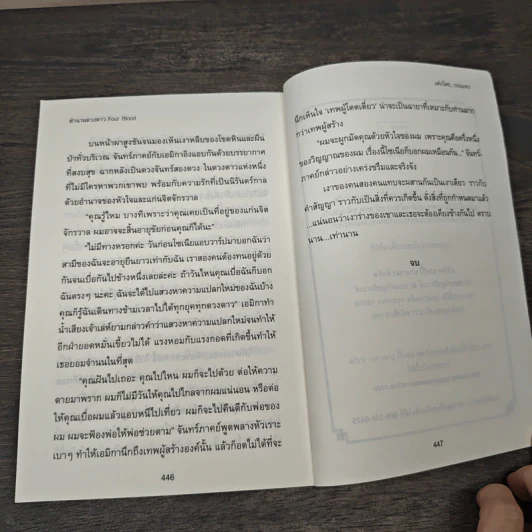 ตำนานดวงดาว Four Blood
บนหน้าผาสูงชันจนมองเห็นเงาหลืบของโขดหินและผืน
ป่าทั่วบริเวณ จันทร์ภาคย์กับเอมิกาอิงแอบกันด้วยบรรยากาศ
ที่สงบสุข ฉากหลังเป็นดวงจันทร์สองดวง ในดวงดาวแห่งหนึ่ง
ที่ไม่มีใครหาพวกเขาพบ พร้อมกับความรักที่เป็นนิรันดร์กาล
ด้วยอำนาจของหัวใจและแก่นจิตจักรวาล
“คุณรู้ไหม บางทีเพราะว่าคุณเคยเป็นที่อยู่ของแก่นจิต
จักรวาล ผมอาจจะสิ้นอายุขัยก่อนคุณก็ได้นะ”
“ไม่มีทางหรอกค่ะ วันก่อนไซเนียแอบวาร์ปมาบอกฉันว่า
สามีของฉันจะอายุยืนยาวเท่ากับฉัน เราสองคนต้องทนอยู่ด้วย
กันจนเบื่อกันไปข้างหนึ่งเลยล่ะค่ะ ถ้าวันไหนคุณเบื่อฉันก็บอก
ฉันตรงๆ นะคะ ฉันจะได้ไปแสวงหาความแปลกใหม่ของฉันบ้าง
คุณก็รู้ฉันเดินทางข้ามเวลาไปได้ทุกยุคทุกดวงดาว” เอมิกาทำ
น้ำเสียงเจ้าเล่ห์ยามกล่าวคำว่าแสวงหาความแปลกใหม่จนทำให้
อีกฝ่ายอดหมั่นเขี้ยวไม่ได้ แรงหอมกับแรงกอดที่เกิดขึ้นทำให้
เธอยอมจำนนในที่สุด
“คุณฝันไปเถอะ คุณไปไหน ผมก็จะไปด้วย ต่อให้ความ
ตายมาพราก ผมก็ไม่มีวันให้คุณไปไกลจากผมแน่นอน หรือต่อ
ให้คุณเบื่อผมแล้วแอบหนีไปเที่ยว ผมก็จะไปคืนดีกับพ่อของ
ผม ผมจะฟ้องพ่อให้พ่อช่วยตาม” จันทร์ภาคย์พูดพลางหัวเราะ
เบาๆ ทำให้เอมิกานึกถึงเทพผู้สร้างองค์นั้น แล้วก็อดไม่ได้ที่จะ
446
นึกเห็นใจ ‘เทพผู้โดดเดี่ยว’ น่าจะเป็นฉายาที่เหมาะกับท่านมาก
กว่าเทพผู้สร้าง
“ผมจะผูกมัดคุณด้วยหัวใจของผม เพราะคุณคือครึ่งหนึ่ง
ของวิญญาณของผม เรื่องนี้ไซเนียก็บอกผมเหมือนกัน...” จันทร์
ภาคย์กล่าวอย่างเคร่งขรึมและจริงจัง
เงาของคนสองคนแทบจะผสานกันเป็นเงาเดียว ราวกับ
คำสัญญา ราวกับเป็นสิ่งที่ควรเกิดขึ้น ดั่งสิ่งที่ถูกกำหนดมาแล้ว
...แน่นอนว่าเงาร่างของเขาและเธอจะต้องเคียงข้างกันไป ตราบ
นาน...เท่านาน
จบ
447